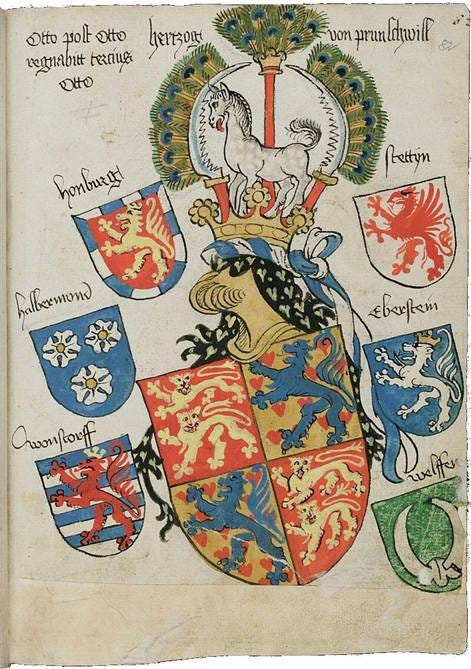 Otto post Otto
regnabit tercius
Otto
hertzog von prunschwikl
82
honburg
stettyn
halbermond
Eberstein
wonstorff
welffen